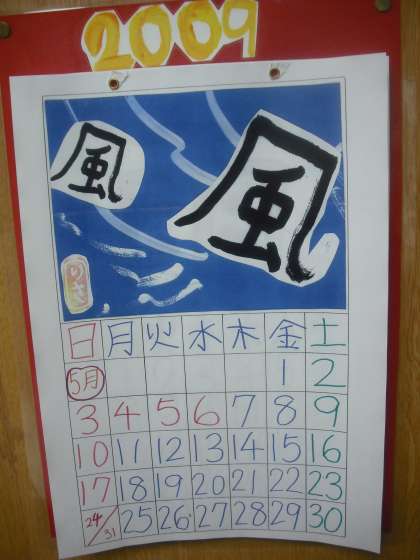 2009
風
風
のぞ
日 月 火 水 木 金 土
5月 1 2
3 4 5 6 7 8 9
10 11 12 13 14 15 16
17 18 19 20 21 22 23
24/31 25 26 27 28 29 30